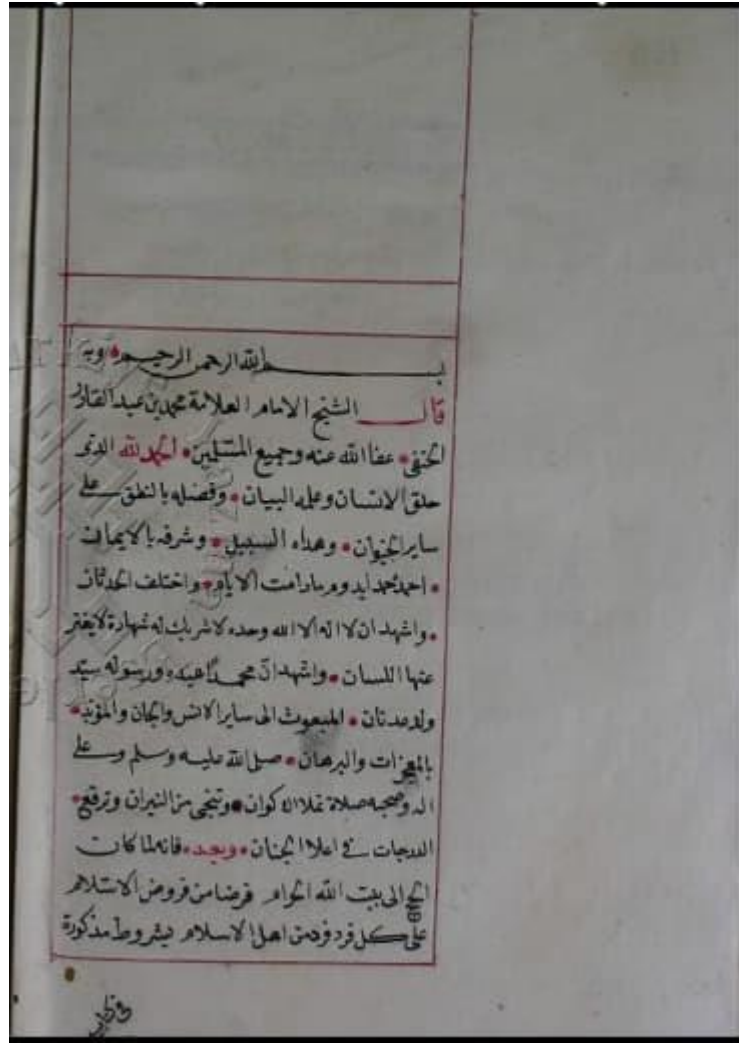 بسم الله الرحمن الرحيم وبه
قال الشيخ الامام العلامة محمد بن عبد القادر
الحنفي عفا الله عنه وجميع المسلمين الحمد لله الذي
خلق الانسان وعلمه البيان وفضله بالنطق على
ساير الحيوان وهداه السبيل وشرفه بالايمان
احمده حمد ايدوم مادامت الايام واختلف الحدثان
واشهد ان لا اله الا الله وحده لا شريك له شهادة لايفتر
عنها اللسان واشهد ان محمدا عبده ورسوله سيد
ولد عدنان المبعوث الى ساير الانس والجان والمؤيد
بالمعجزات والبرهان صلى الله عليه وسلم وعلى
اله وصحبه صلاة تملا الاكوان وتنجى من النيران وترفع
الدرجات في اعلا الجنان وبعد فانه لما كان
الحج الى بيت الله الحرام فرضا من فروض الاسلام
على كل فرد فرد من اهل الاسلام بشروط مذكورة